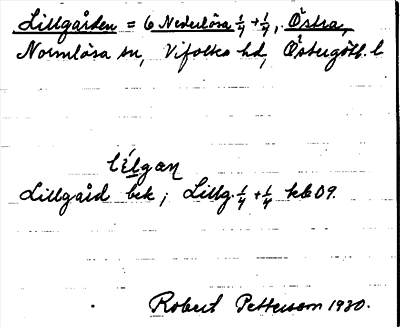 Lillgården = 6 Nederlösa 1/4 + 1/4, Östra,
Normlösa sn, Vifolka hd, Östergötl. l
lílgan
Lillgård bek; Lillg. 1/4 + 1/4 kb 09.
Robert Petterson 1930.